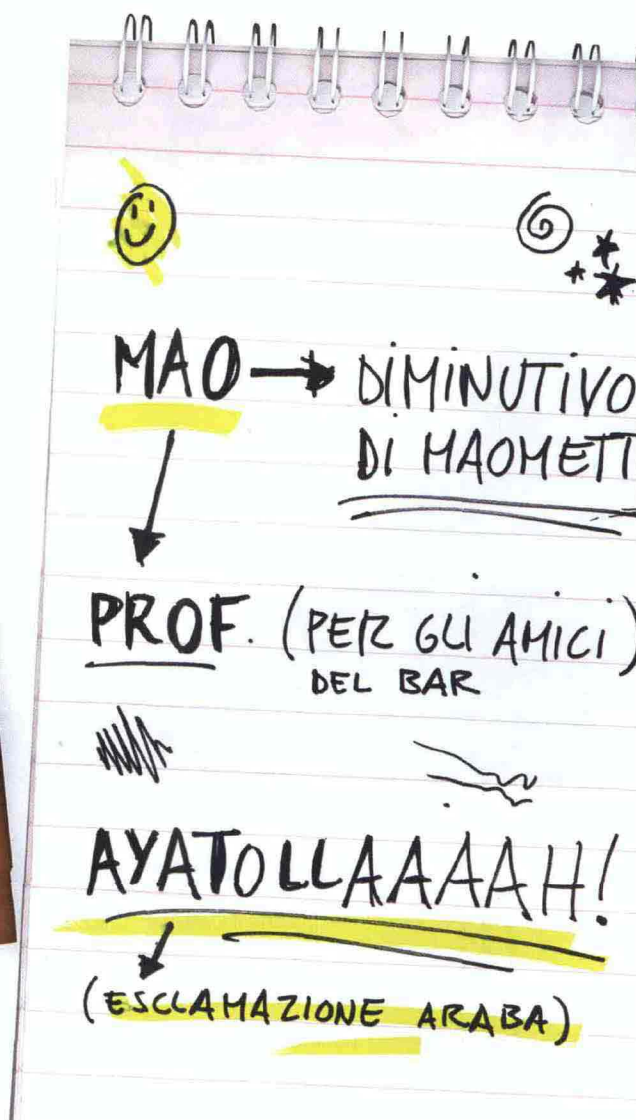 MAO → DIMINUTIVO
DI MAOMETT
PROF. (PER GLI AMICI)
DEL BAR
AYATOLLAAAAH!
(ESCLAMAZIONE ARABA)